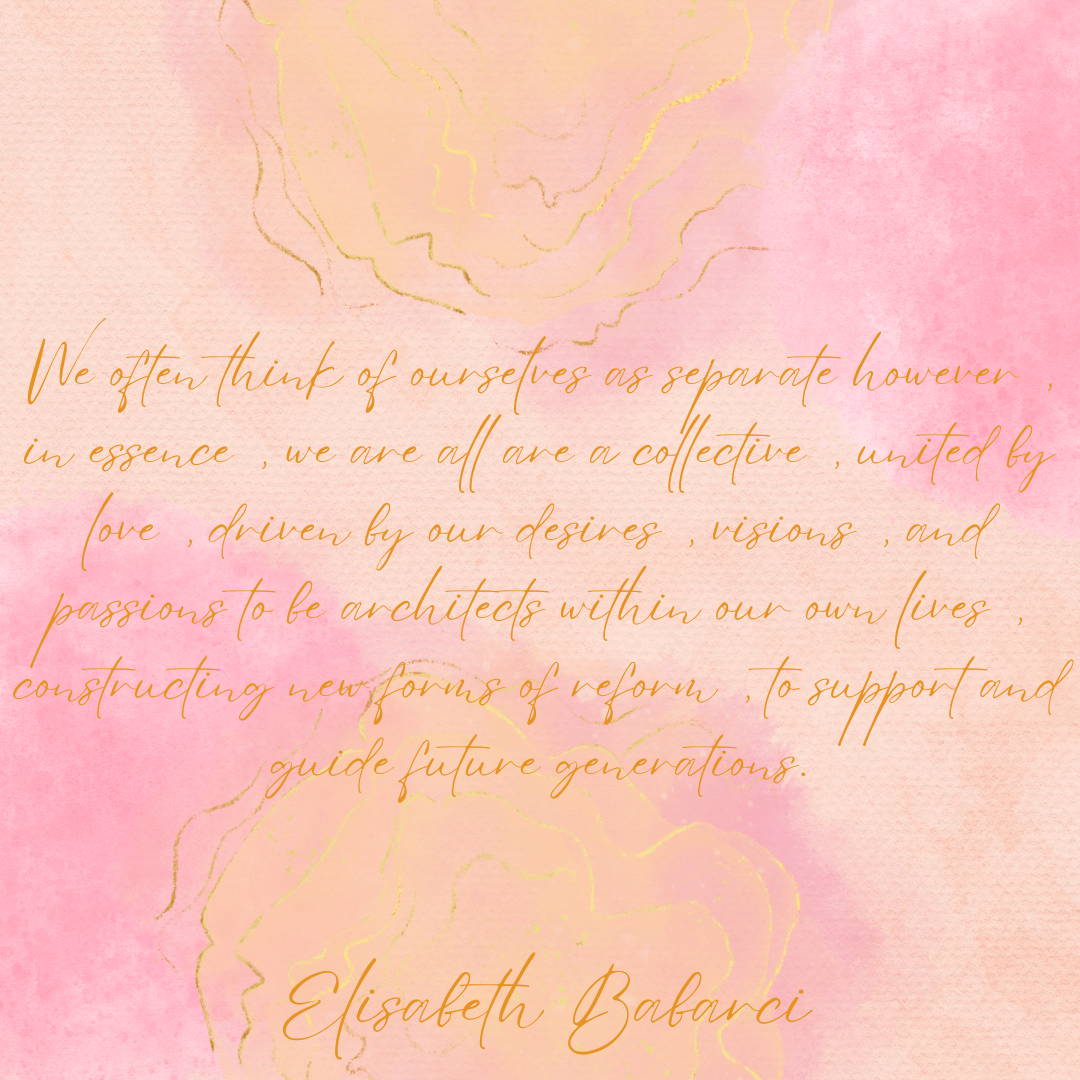 We often think of ourselves as separate however ,
in essence , we are all are a collective , united by
love , driven by our desires , visions , and
passions to be architects within our own lives ,
constructing new forms of reform , to support and
guide future generations.
Elisabeth Babarci